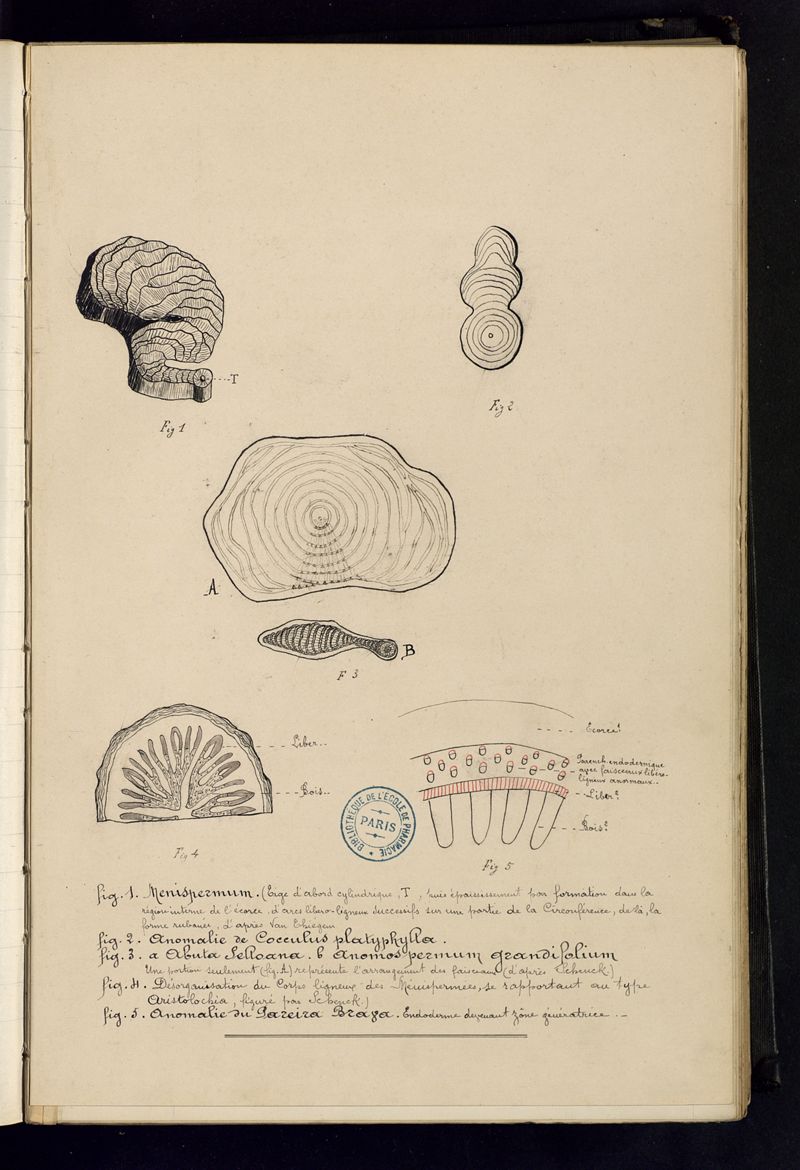 T
Fig 1
Fig 2
A
B
F 3
Liber..
Bois..
Fig 4
Ecorce
Parench endodermique
avec faisceaux libéro-
ligneux anormaux..
Liber
Bois
Fig 5
BIBLIOTHÈQUE DE L'ÉCOLE DE PHARMACIE
PARIS
fig. 1. Menispermum. (Tige d'abord cylindrique, T, puis épaississement par formation dans la
région interne de l'écorce, d'arcs libero-ligneux successifs sur une partie de la Circonférence, de là, la
forme rubanée, d'après Van Thiégem
fig. 2. Anomalie de Cocculus platyphylla.
fig. 3. a Abuta Selloana. b Anomospermum grandifolium
Une portion seulement (fig. A) représente l'arrangement des faisceaux (d'après Schenck)
fig. 4. Désorganisation du Corps ligneux des Ménispermées, se rapportant au type
Aristolochia, figuré par Schenck.)
fig. 5. Anomalie du Pareira Brava. Endoderme devenant zône génératrice. _